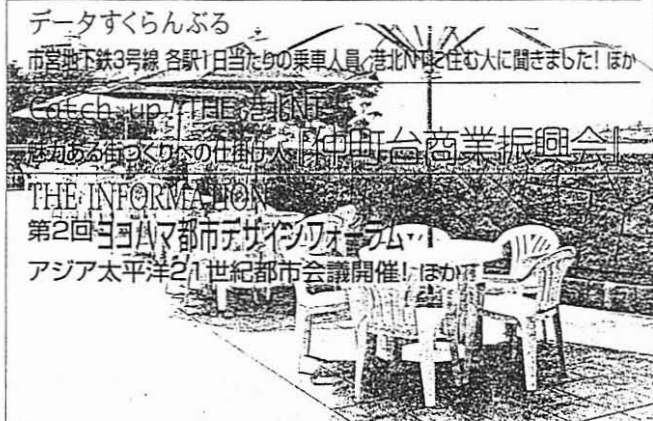 データすくらんぶる
市営地下鉄3号線 各駅1日当たりの乗車人員/港北NTに住む人に聞きました! ほか
Catch up/THE 港北NT
魅力ある街づくりへの仕掛け人「仲町台商業振興会」
THE INFORMATION
第2回ヨコハマ都市デザインフォーラム
アジア太平洋21世紀都市会議開催! ほか